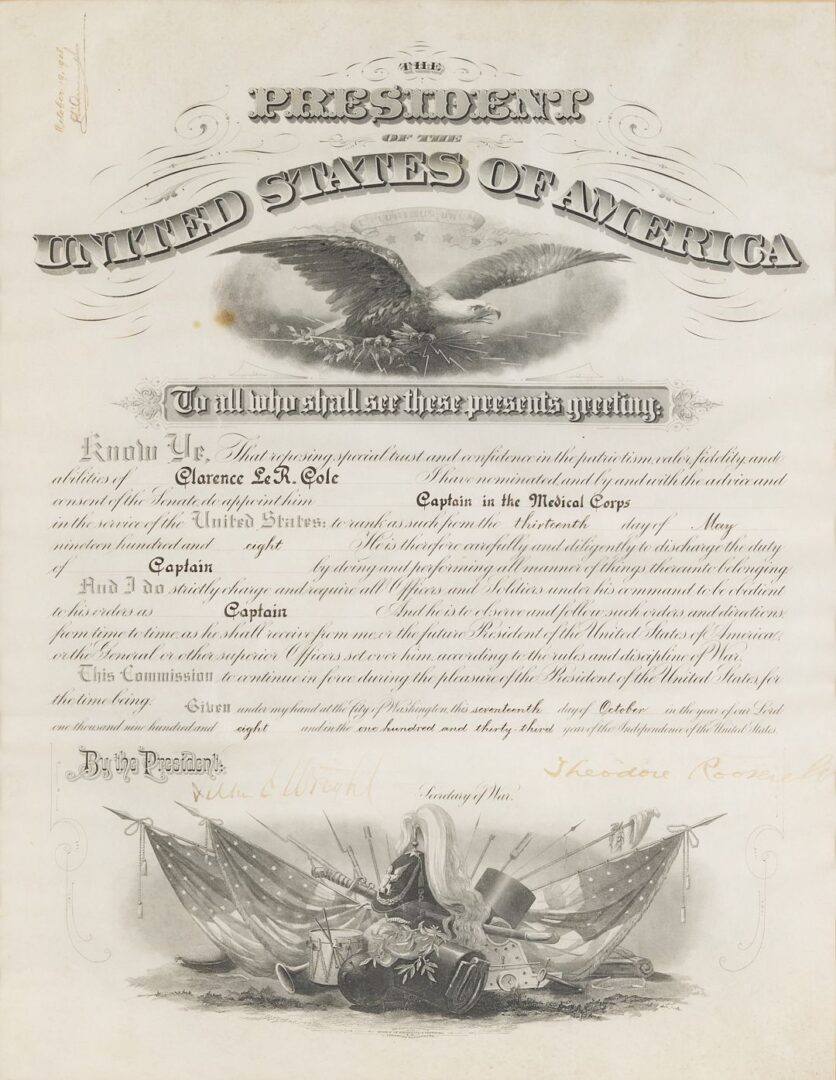 October 19, 1908
THE
PRESIDENT
OF THE
UNITED STATES OF AMERICA
To all who shall see these presents greeting:
Know Ye, That reposing special trust and confidence in the patriotism, valor, fidelity and
abilities of Clarence Le R. Cole I have nominated and by and with the advice and
consent of the Senate, do appoint him Captain in the Medical Corps
in the service of the United States: to rank as such from the thirteenth day of May
nineteen hundred and eight He is therefore carefully and diligently to discharge the duty
of Captain by doing and performing all manner of things thereunto belonging.
And I do strictly charge and require all Officers and Soldiers under his command to be obedient
to his orders as Captain And he is to observe and follow such orders and directions,
from time to time, as he shall receive from me, or the future President of the United States of America,
or the General or other superior Officers set over him, according to the rules and discipline of War.
This Commission to continue in force during the pleasure of the President of the United States, for
the time being.
Given under my hand at the City of Washington, this seventeenth day of October in the year of our Lord
one thousand nine hundred and eight and in the one hundred and thirty-third year of the Independence of the United States.
By the President: Theodore Roosevelt
Luke E Wright
Secretary of War.